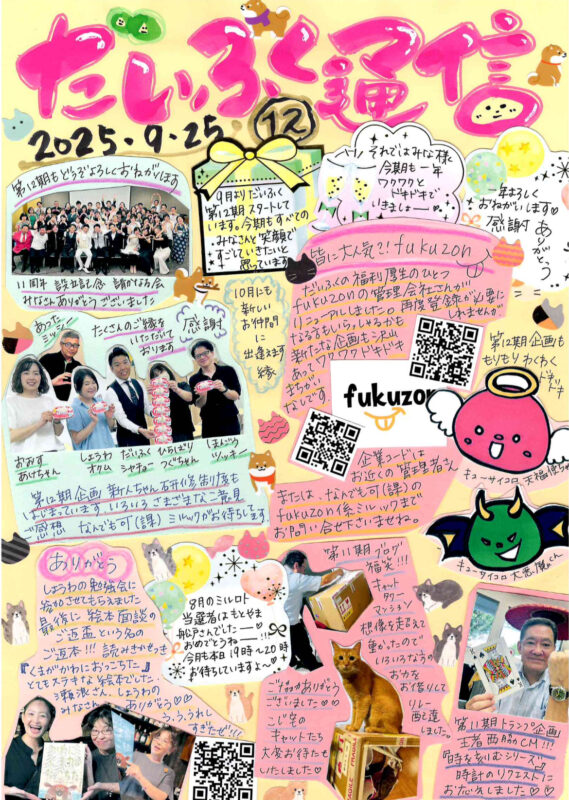 だいふく通信
2025・9・25 ⑫
第12期もどうぞよろしくおねがいします
11周年 設立記念 謝恩会
みなさんありがとうございました
9月より だいふく
第12期 スタートして
います。今期もすべての
みなさんと笑顔で
すごしていきたいと
思っています
それではみな様
今期も一年
ワクワクと
ドキドキで
いきましょー♡
一年よろしく
おねがいします♡
感謝
ありがとう
10月にも
新しい
お仲間に
出逢えます
縁
皆に大人気?!fukuzon
だいふくの福利厚生のひとつ
fukuzonの管理会社さんが
リニューアルしました。再度登録が必要に
なる方もいらっしゃるかも しれませんが
新たな企画も沢山
あって
ワクワクドキドキ
まちがい
なしです。
fukuzon
企業コードは
お近くの管理者さん
または、なんでも可(課)の
fukuzon係ミルックまで
お問い合せ下さいませね。
第12期企画も
もりもりわくわく
ドキドキ
キューサイコロ 天福使ちゃん
キューサイコロ 大悪魔くん
たくさんのご縁を
いただいて
おります
感謝
おみず
あけちゃん
しょうわ
オクム
だいふく
シャチョー
ひろばり
つぐちゃん
しまんじろう
ツッチー
第12期企画 新人ちゃん
はじまっています いろいろ さまざまなご意見
ご感想 なんでも可(課)ミルックがお待ちします
ありがとう
しょうわの勉強会に
参加させてもらえました
最後に 絵本面談の
ご返盃という名の
ご返本!!! 読みきかせっき
『くまがかわにおっこちた』
とてもステキな絵本でした
しょうわの
みなさん ありがとう♡♡
う、う、うれし
すぎたぜ!!!
8月のミルロト
当選者は もとやま
船戸さんでした
おめでとうね
今月も本日19時〜20時
お待ちしていますよ〜♡
第11期ブログ
福笑!!!
キャット
タワー
マンション
想像を超えて
重かったので
いろいろな方の
お力を
お借りして
リレー
配達
しました。
ご寄付ありがとう
ございました♡
こじ宅の
キャットたち
大変お待たせ
いたしました♡♡
第11期トランプ企画
王者 西脇CM!!!
『時を刻むシリーズ』
時計のリクエストに
お応えしました♡